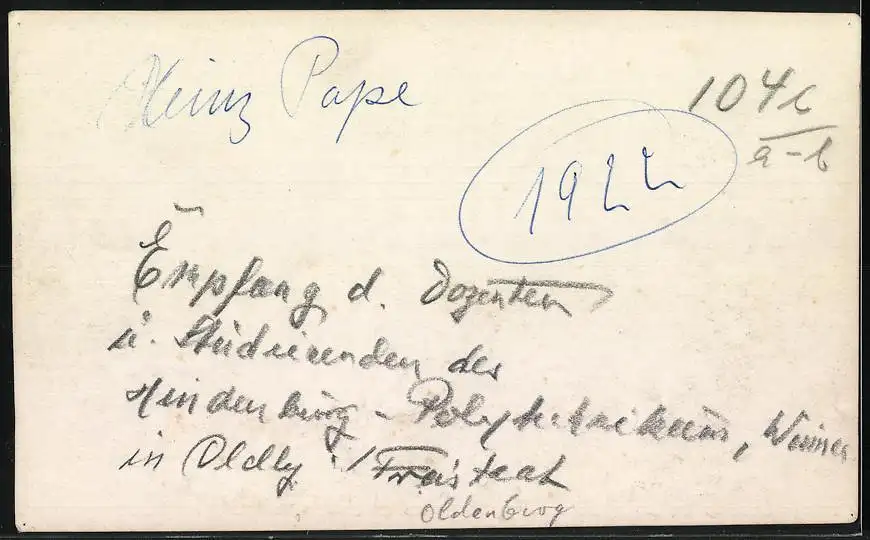 Heinz Pape
104c
a-b
1922
Empfang d. Dozenten
u. Studierenden des
Hindenburg - Polytechnikums,
in Oldbg i/ Freistaat
Oldenburg